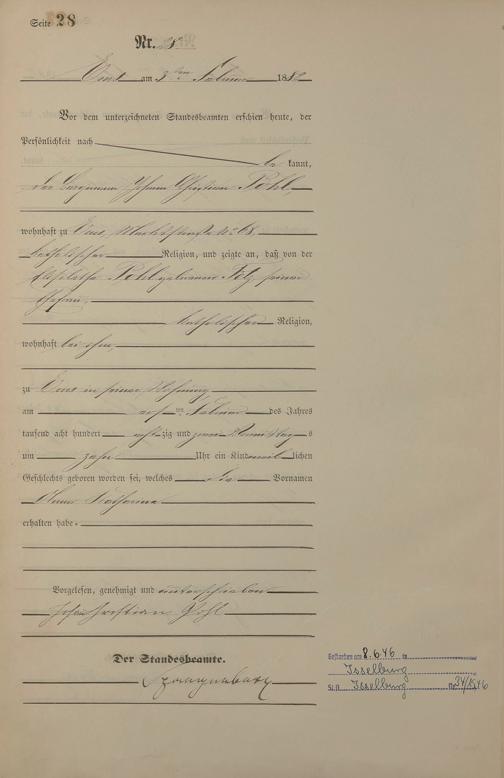 Seite 28
Nr. 28
Ems am 3ten Februar 1882
Vor dem unterzeichneten Standesbeamten erschien heute, der
Persönlichkeit nach
be kannt,
der Bergmann Johann Christian Pohl,
wohnhaft zu Ems, Marktstraße No 68,
katholischer Religion, und zeigte an, daß von der
Elisabetha Pohl geborenen seiner
Ehefrau,
katholischer Religion,
wohnhaft bei ihm,
zu Ems in seiner Wohnung
am ersten Februar des Jahres
tausend acht hundert acht zig und zwei Vormittags
um zehn Uhr ein Kind weiblichen
Geschlechts geboren worden sei, welches die Vornamen
Katharina
erhalten habe.
Vorgelesen, genehmigt und unterschrieben
Johann Christian Pohl
Der Standesbeamte.
Gestorben am 8.6.46 in
Isselburg
St.A. Isselburg Nr. 34/1946